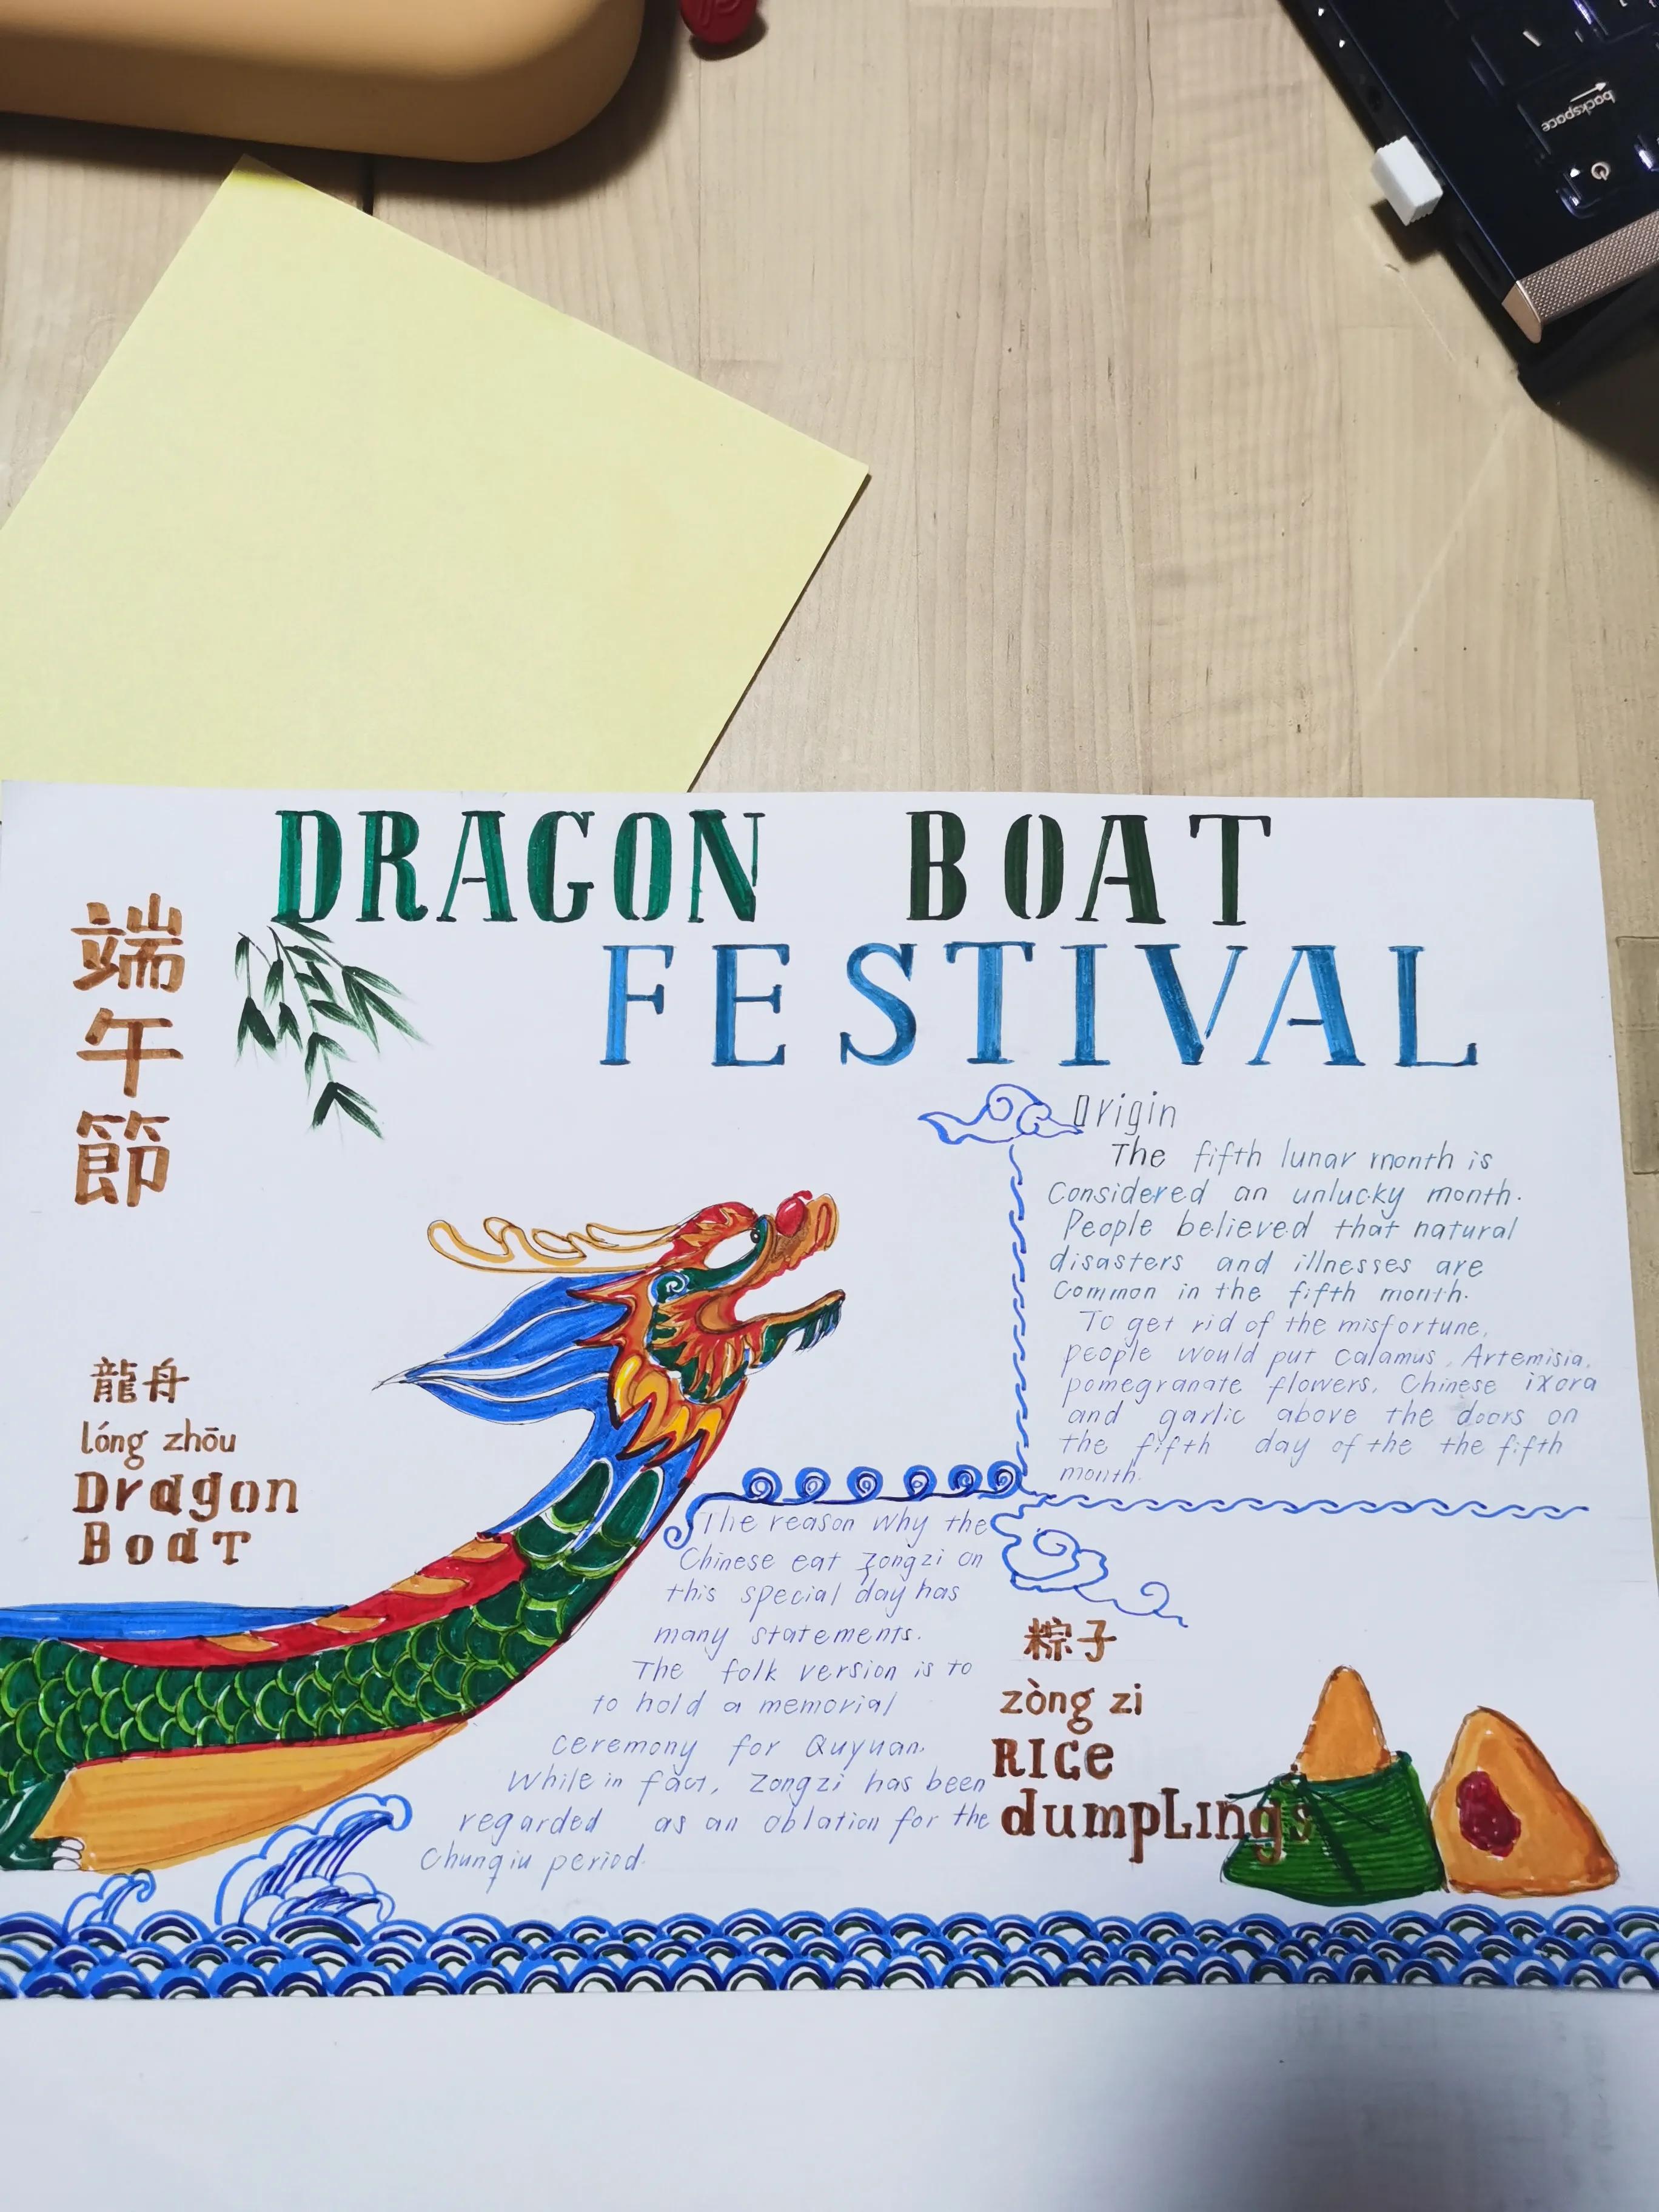 backspace
DRAGON BOAT
FESTIVAL
端
午
節
Origin
The fifth lunar month is
Considered an unlucky month.
People believed that natural
disasters and illnesses are
Common in the fifth month.
To get rid of the misfortune,
people would put Calamus, Artemisia,
pomegranate flowers, Chinese ixora
and garlic above the doors on
the fifth day of the the fifth
month.
龍舟
lóng zhōu
Dragon
Boat
The reason why the
Chinese eat Zongzi on
this special day has
many statements.
The folk version is to
to hold a memorial
ceremony for Quyuan.
While in fact, Zongzi has been
regarded as an oblation for the
Chunqiu period.
粽子
zòng zi
RIce
dumpLIngs